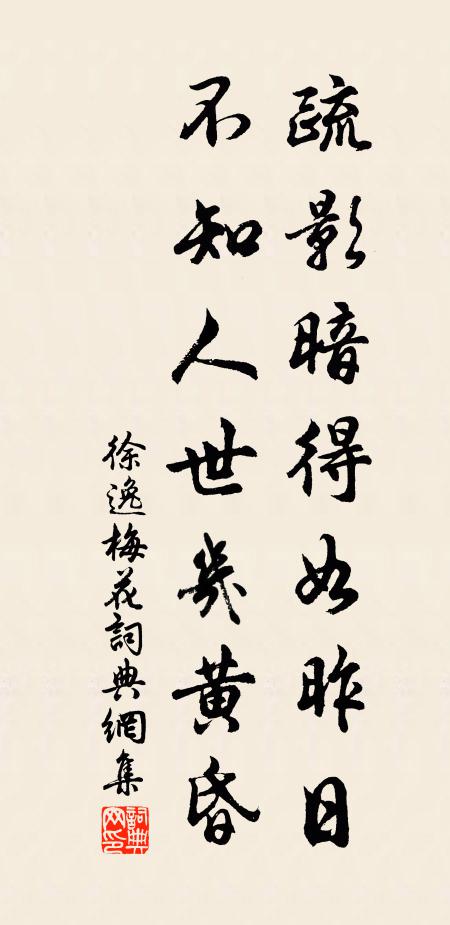 疏影暗得如昨日
不知人世幾黃昏
徐逸梅花詞典網集
詞典网印